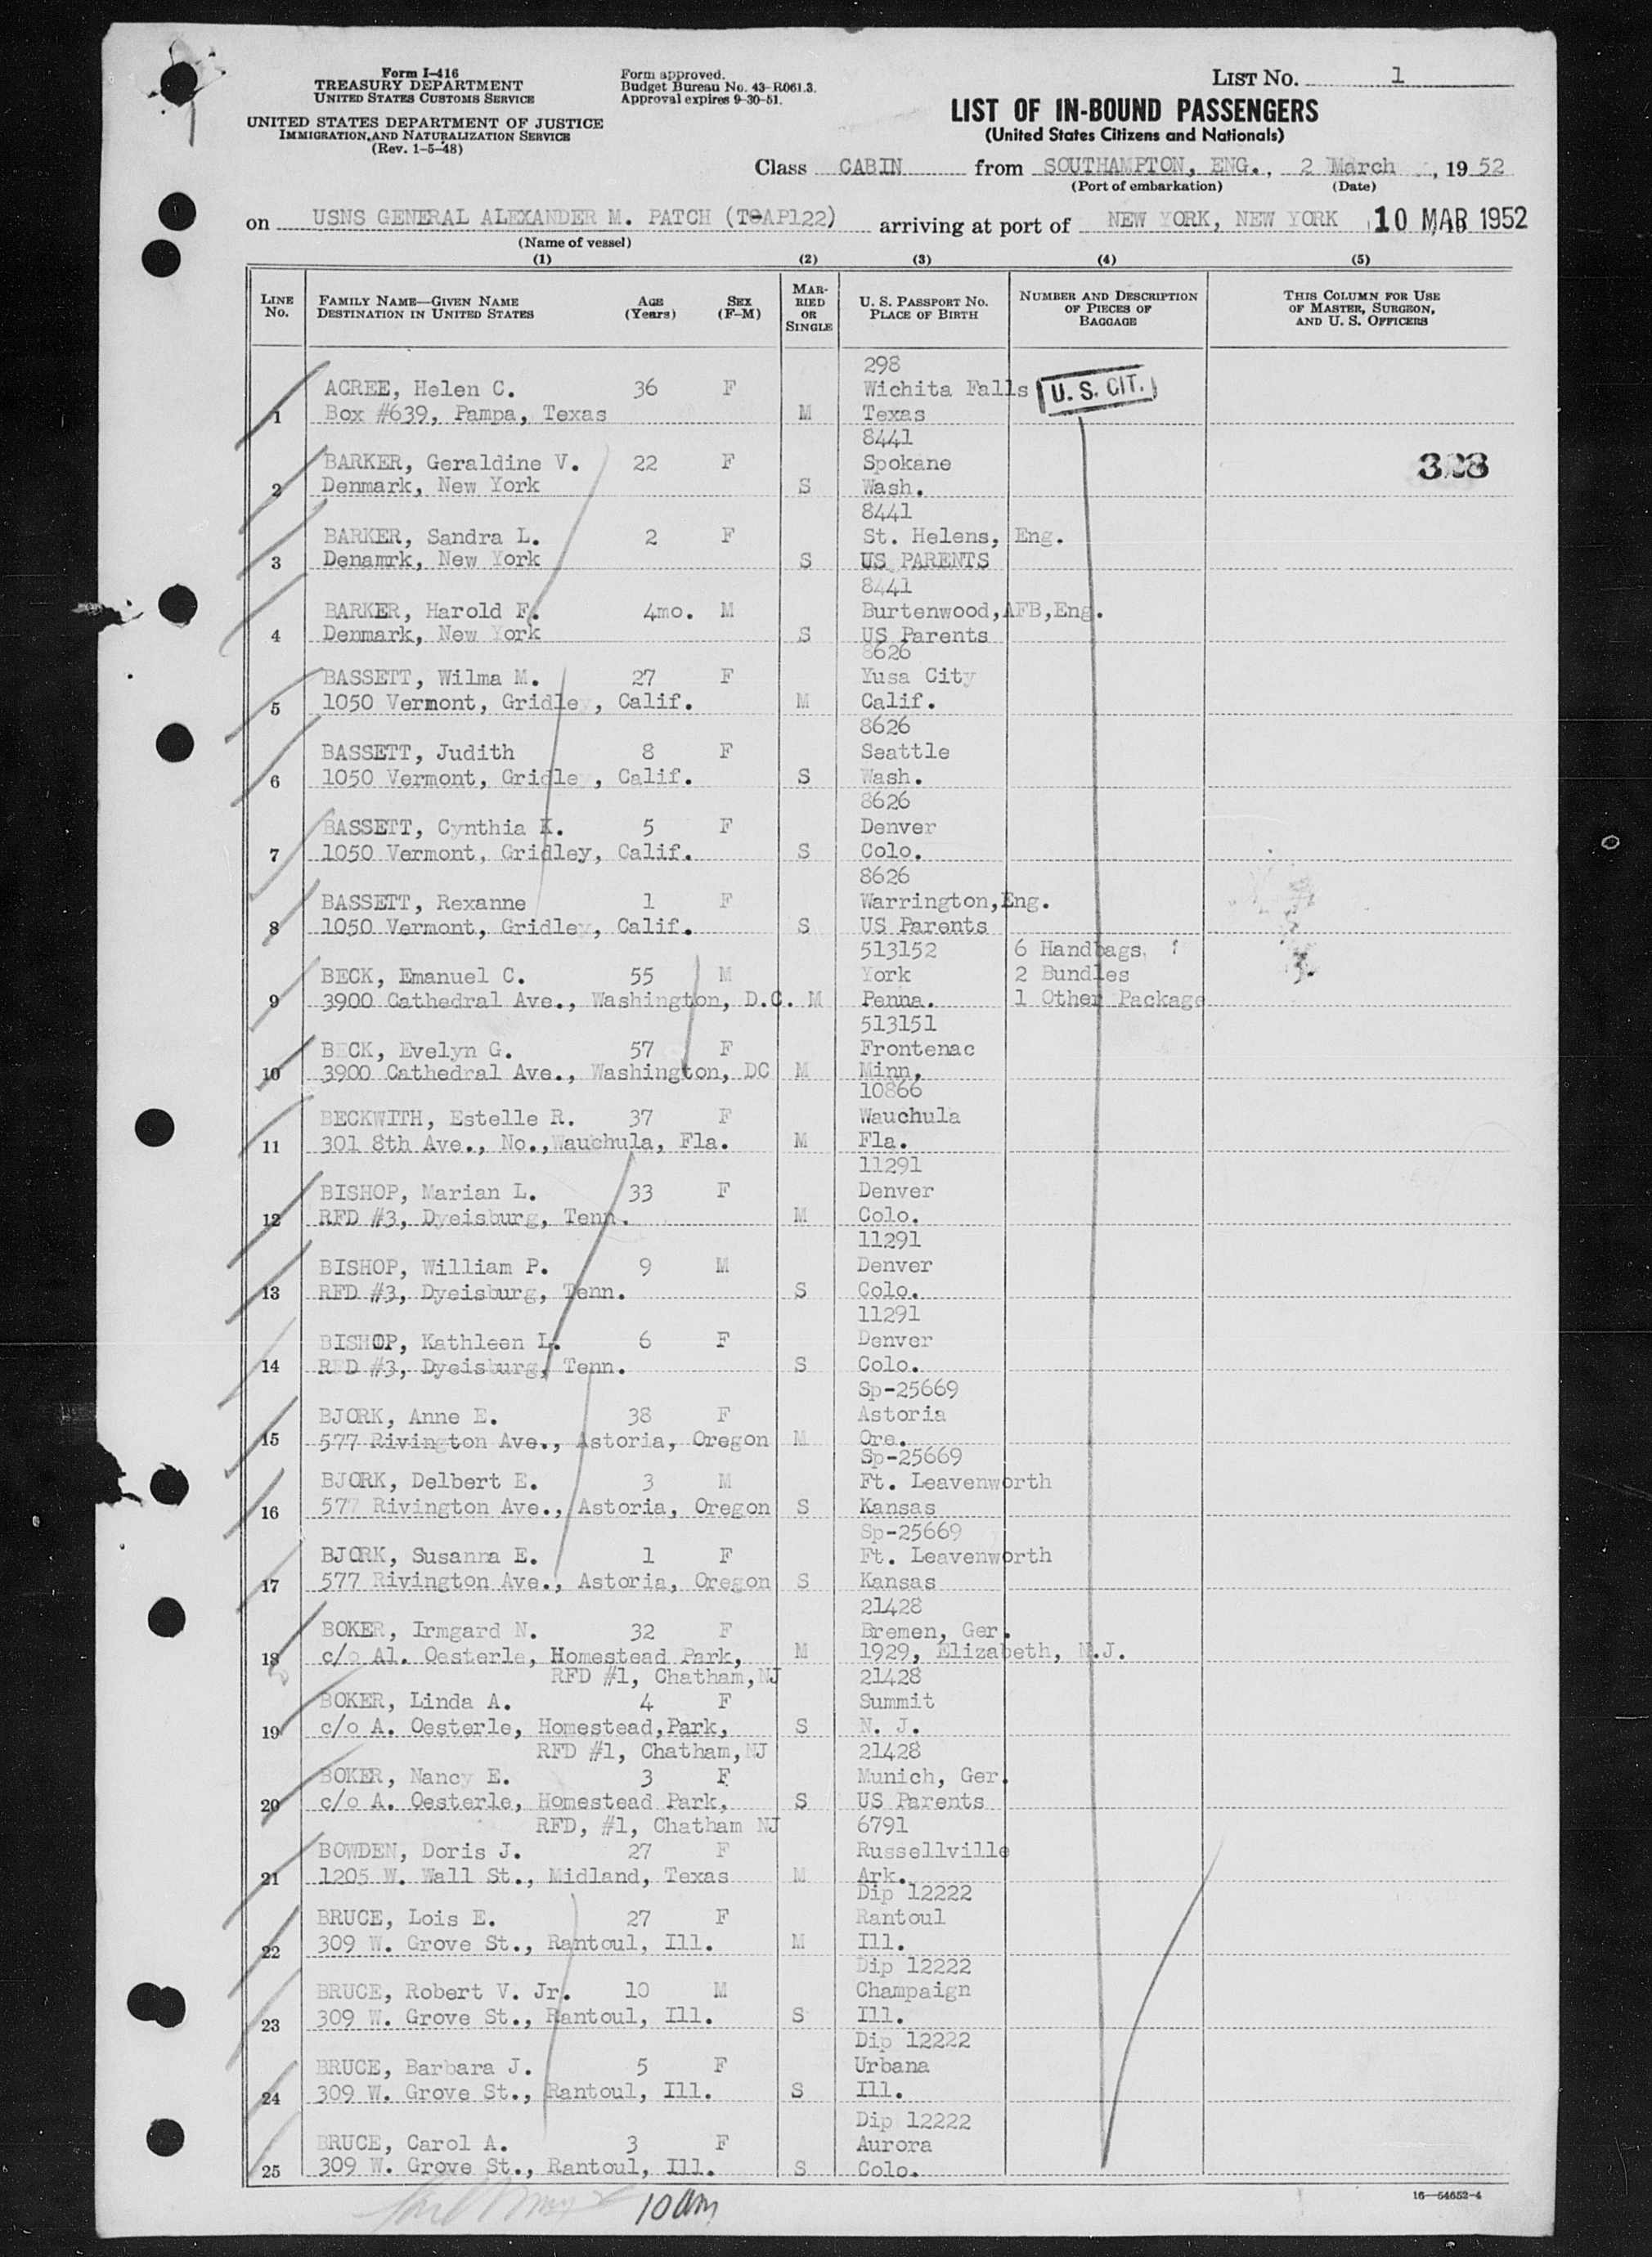 Form I-416
TREASURY DEPARTMENT
UNITED STATES CUSTOMS SERVICE
UNITED STATES DEPARTMENT OF JUSTICE
IMMIGRATION AND NATURALIZATION SERVICE
(Rev. 1-5-48)
Form approved.
Budget Bureau No. 43-R061.3.
Approval expires 9-30-51.
LIST NO. 1
LIST OF IN-BOUND PASSENGERS
(United States Citizens and Nationals)
Class CABIN from SOUTHAMPTON, ENG., 2 March, 19 52
(Port of embarkation) (Date)
on USNS GENERAL ALEXANDER M. PATCH (TAP122) arriving at port of NEW YORK, NEW YORK 10 MAR 1952
(Name of vessel)
(1) (2) (3) (4) (5)
LINE NO. FAMILY NAME—GIVEN NAME DESTINATION IN UNITED STATES AGE (Years) SEX (F-M) MARRIED OR SINGLE U. S. PASSPORT NO. PLACE OF BIRTH NUMBER AND DESCRIPTION OF PIECES OF BAGGAGE THIS COLUMN FOR USE OF MASTER, SURGEON, AND U. S. OFFICERS
298
ACREE, Helen C. 36 F Wichita Falls U. S. CIT.
1 Box #639, Pampa, Texas M Texas
8441
BARKER, Geraldine V. 22 F Spokane
2 Denmark, New York S Wash.
8441
BARKER, Sandra L. 2 F St. Helens, Eng.
3 Denamrk, New York S US PARENTS
8441
BARKER, Harold F. 4mo. M Burtenwood, AFB, Eng.
4 Denmark, New York S US Parents
8626
BASSETT, Wilma M. 27 F Yusa City
5 1050 Vermont, Gridley, Calif. M Calif.
8626
BASSETT, Judith 8 F Seattle
6 1050 Vermont, Gridley, Calif. S Wash.
8626
BASSETT, Cynthia K. 5 F Denver
7 1050 Vermont, Gridley, Calif. S Colo.
8626
BASSETT, Rexanne 1 F Warrington, Eng.
8 1050 Vermont, Gridley, Calif. S US Parents
513152 6 Handbags
BECK, Emanuel C. 55 M York 2 Bundles
9 3900 Cathedral Ave., Washington, D.C. M Penna. 1 Other Package
513151
BECK, Evelyn G. 57 F Frontenac
10 3900 Cathedral Ave., Washington, DC M Minn.
10866
BECKWITH, Estelle R. 37 F Wauchula
11 301 8th Ave., No., Wauchula, Fla. M Fla.
11291
BISHOP, Marian L. 33 F Denver
12 RFD #3, Dyeisburg, Tenn. M Colo.
11291
BISHOP, William P. 9 M Denver
13 RFD #3, Dyeisburg, Tenn. S Colo.
11291
BISHOP, Kathleen L. 6 F Denver
14 RFD #3, Dyeisburg, Tenn. S Colo.
Sp-25669
BJORK, Anne E. 38 F Astoria
15 577 Rivington Ave., Astoria, Oregon M Ore.
Sp-25669
BJORK, Delbert E. 3 M Ft. Leavenworth
16 577 Rivington Ave., Astoria, Oregon S Kansas
Sp-25669
BJORK, Susanna E. 1 F Ft. Leavenworth
17 577 Rivington Ave., Astoria, Oregon S Kansas
21428
BOKER, Irmgard N. 32 F Bremen, Ger.
18 c/o Al. Oesterle, Homestead Park, M 1929, Elizabeth, N.J.
RFD #1, Chatham, NJ 21428
BOKER, Linda A. 4 F Summit
19 c/o A. Oesterle, Homestead, Park, S N. J.
RFD #1, Chatham, NJ 21428
BOKER, Nancy E. 3 F Munich, Ger.
20 c/o A. Oesterle, Homestead Park, S US Parents
RFD, #1, Chatham NJ 6791
BOWDEN, Doris J. 27 F Russellville
21 1205 W. Wall St., Midland, Texas M Ark.
Dip 12222
BRUCE, Lois E. 27 F Rantoul
22 309 W. Grove St., Rantoul, Ill. M Ill.
Dip 12222
BRUCE, Robert V. Jr. 10 M Champaign
23 309 W. Grove St., Rantoul, Ill. S Ill.
Dip 12222
BRUCE, Barbara J. 5 F Urbana
24 309 W. Grove St., Rantoul, Ill. S Ill.
Dip 12222
BRUCE, Carol A. 3 F Aurora
25 309 W. Grove St., Rantoul, Ill. S Colo.
16-54652-4
10 am